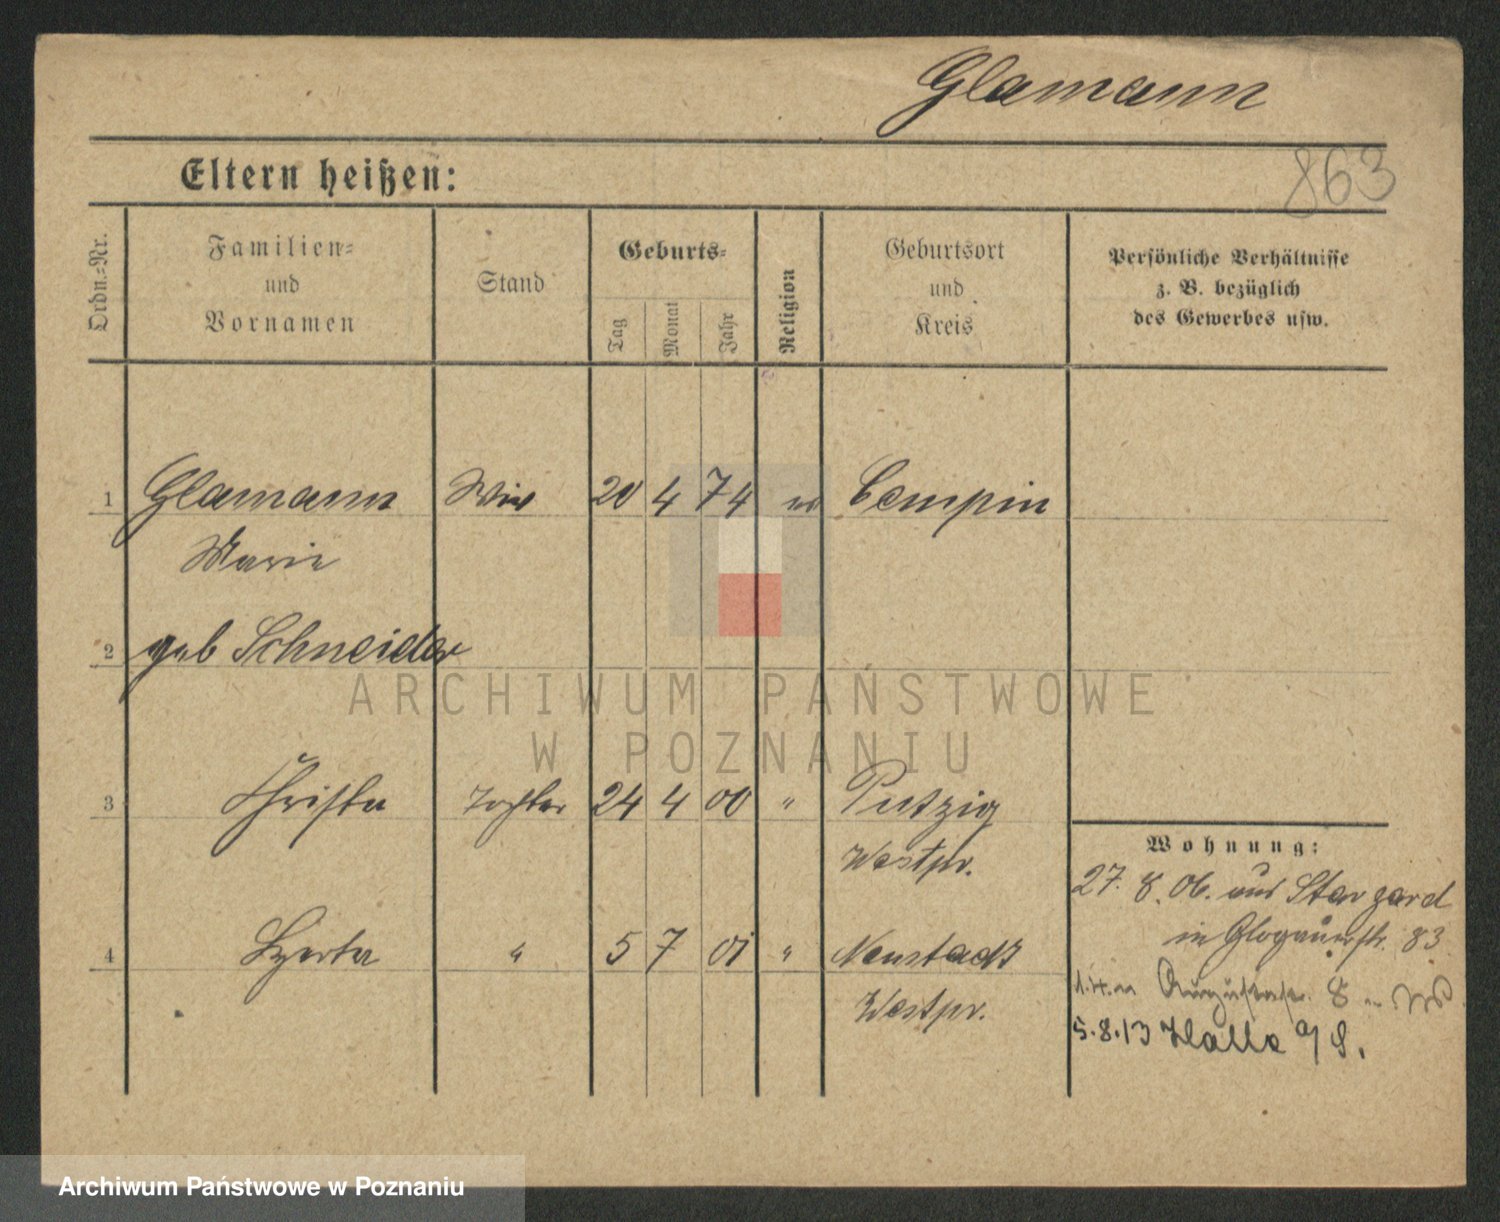 Glamann
863
Eltern heißen:
Ordn.=Nr.
Familien=
und
Vornamen
Stand
Geburts=
Tag
Monat
Jahr
Religion
Geburtsort
und
Kreis
Persönliche Verhältnisse
z. B. bezüglich
des Gewerbes usw.
1 Glamann 20 4 74 Cempin
Marie
2 geb Schneider
3 Christa Tochter 24 4 00 " Putzig
Westpr.
4 Herta " 5 7 01 " Neustadt
Westpr.
Wohnung:
27. 8. 06. aus Stargard
in Glogauerstr. 83
Augustastr. 8
5.8.13 Halle a/S.
ARCHIWUM PAŃSTWOWE
W POZNANIU
Archiwum Państwowe w Poznaniu